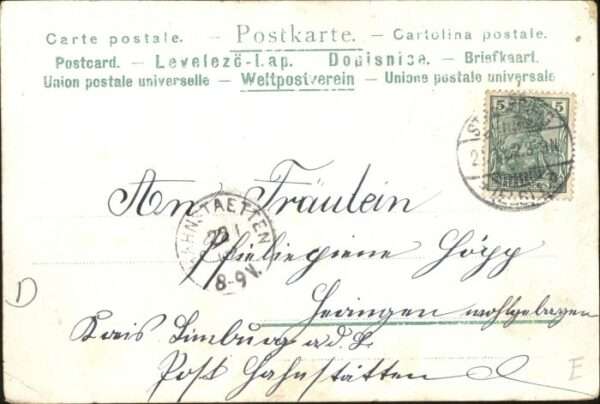 Carte postale. – Postkarte. – Cartolina postale.
Postcard. – Levelező-Lap. Dopisnice. – Briefkaart.
Union postale universelle – Weltpostverein – Unione postale universale
5 5
An Fräulein
HAHNSTAETTEN
22 1
8-9V.
Höpp
wohlgeboren
Kais Limburg a.d.L.
Post Hahnstätten
D
E